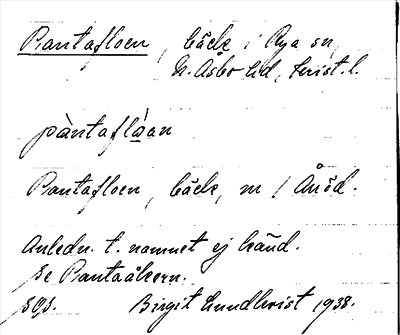 Pantafloen, bäck i Rya sn,
N. Åsbo hd, Krist. l.
pàntaflo̱an
Pantafloen, bäck, m / Åröd.
Anledn. t. namnet ej känd.
se Pantaåkern.
Birgit Lundkvist 1938.